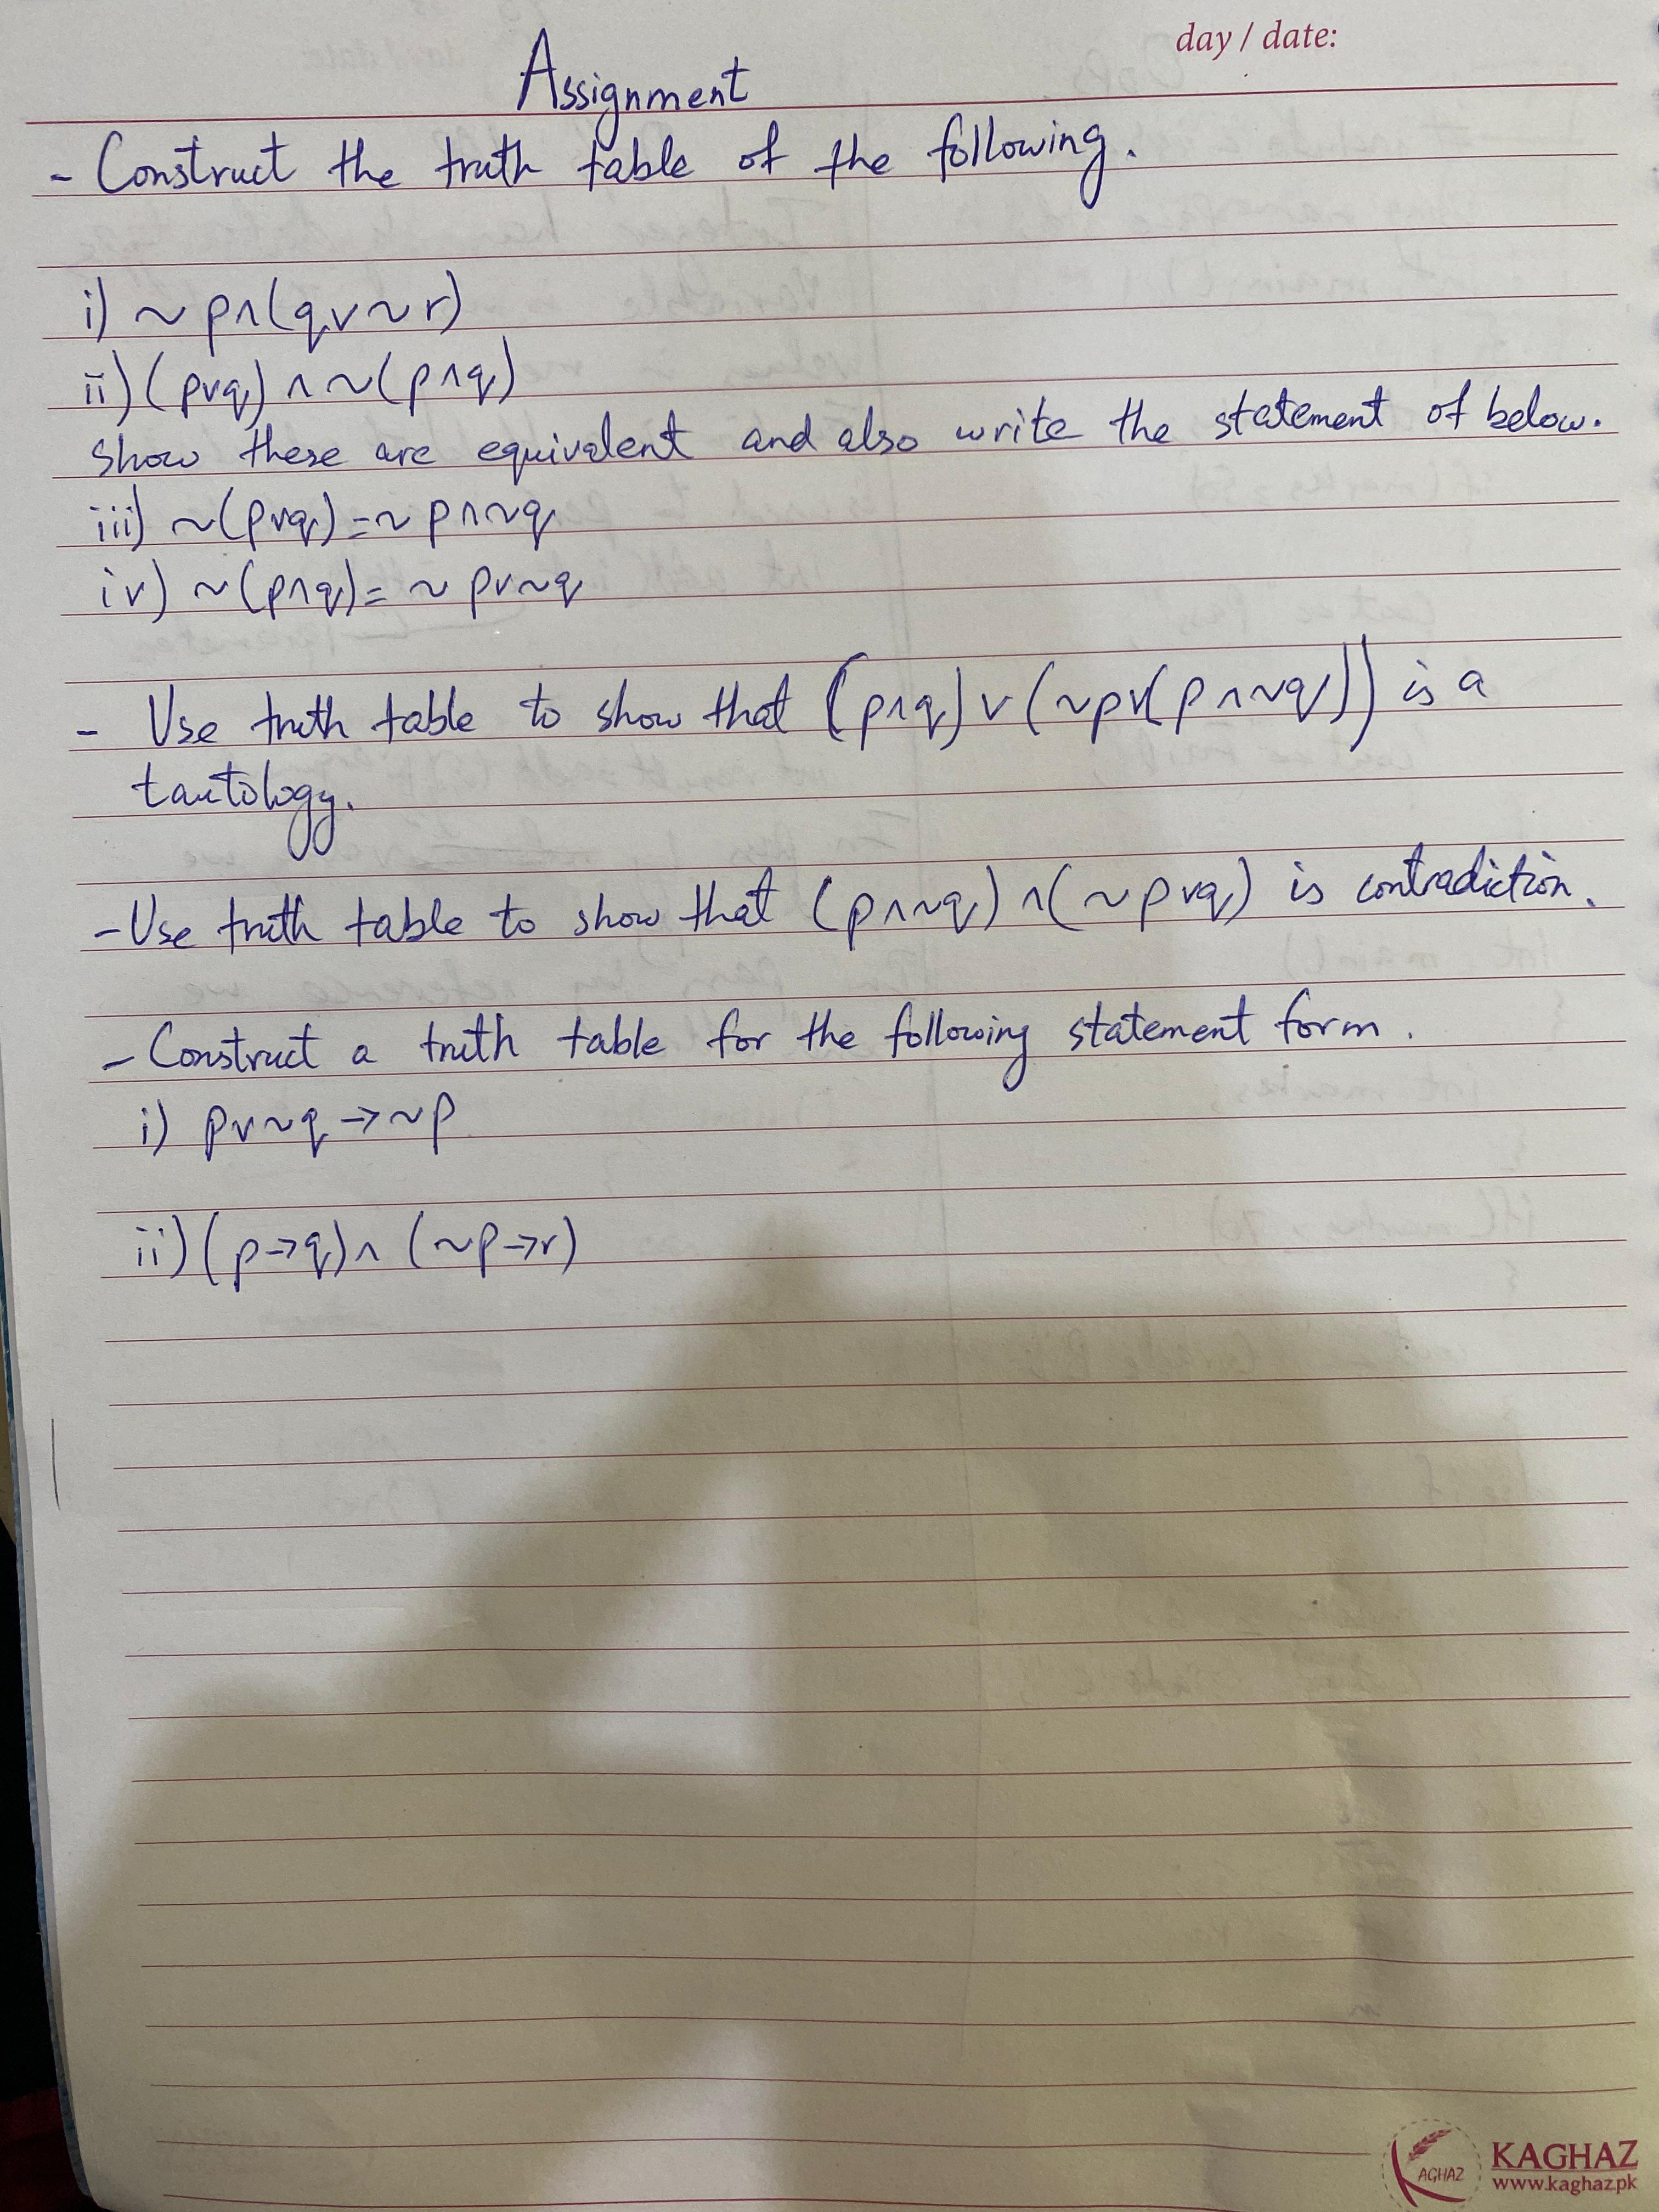 day / date:
Assignment
- Construct the truth table of the following.
i) ~p∧(q∨~r)
ii) (p∨q)∧~(p∧q)
show these are equivalent and also write the statement of below.
iii) ~(p∨q)=~p∧~q
iv) ~(p∧q)=~p∨~q
- Use truth table to show that (p∧q)∨(~p∨(p∧~q)) is a
tautology.
- Use truth table to show that (p∧~q)∧(~p∨q) is contradiction.
- Construct a truth table for the following statement form.
i) p∨~q→~p
ii) (p→q)∧(~p→r)
AGHAZ
KAGHAZ
www.kaghaz.pk